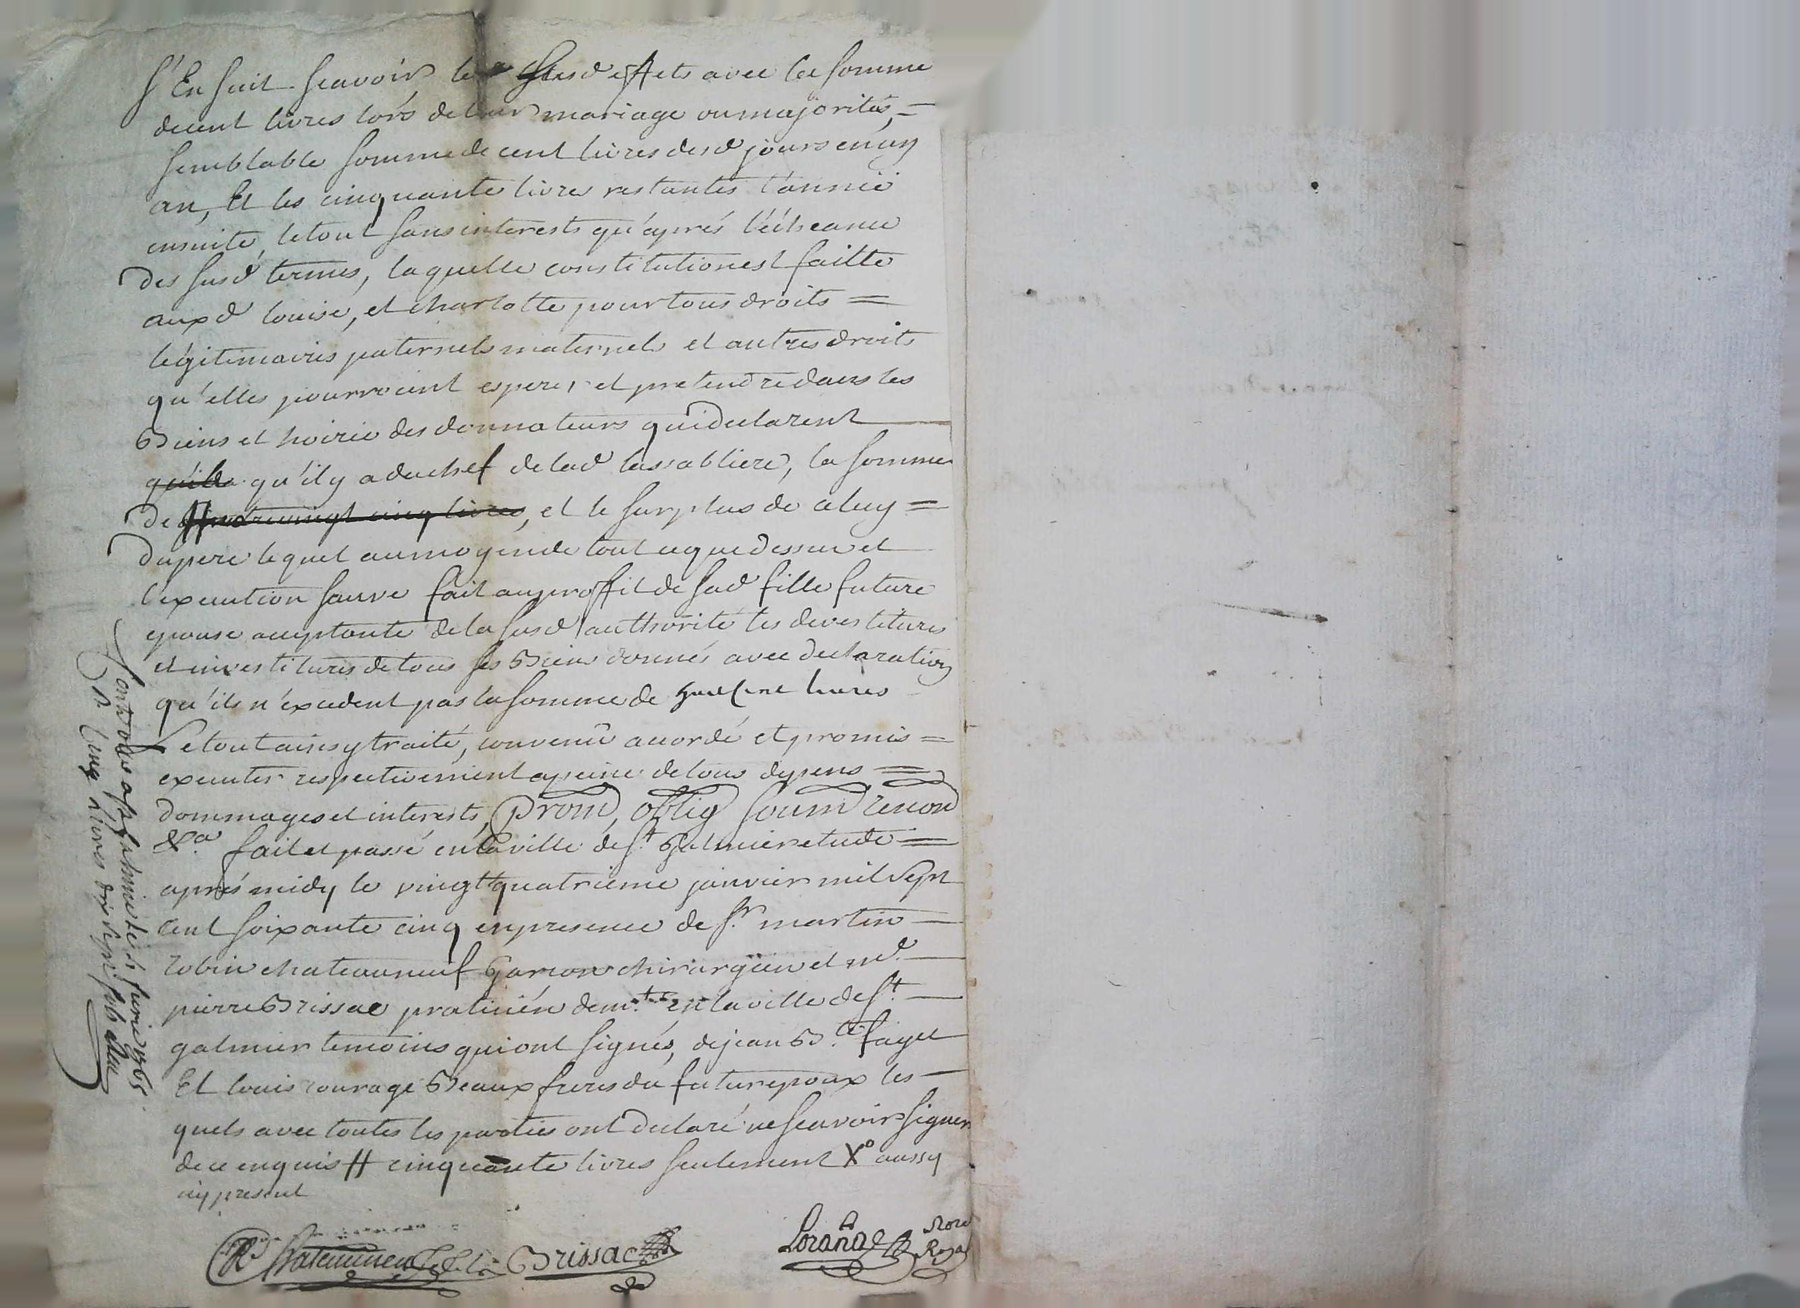 s'En suit scavoir les susd effets avec lee somme
decent livres lors de leur mariage ou majorités, =
semblable somme de cent livres desd jours en un
an, Et les cinquante livre restantes l'année
ensuite, le tout sans interests qu'aprés l'écheance
des susd termes, laquelle constitution est faitte
auxd louise, et charlotte pour tous droits =
légitimaires paternels maternels et autres droits
qu'elles pourroient esperer et pretendre dans les
Biens et hoirie des donnateurs qui declarent
qu'ils qu'il y a du chef de lad lassabliere, la somme
de quatrevingt cinq livres, et le surplus de celuy =
du pere lequel au moyen de tout ce que dessus et
l'execution sauve fait au proffit de sad fille future
epouse acceptante de la susd authorité les devestitures
et investitures de tous ses Biens donnés avec declaration
qu'ils n'excedent pas la somme de livres
Le tout ainsy traité, convenû accordé et promis =
executer respectivement a peine de tous depens =
dommages et interests, prom, oblig soum renon
&ca. fait et passé en la ville de st galmier etude =
aprés midy le vingt quatrieme janvier mil sept
cent soixante cinq en presence de sr. martin
robin chateauneuf garcon chirurgien et md.
pierre Brissac praticién dem.ts en la ville de st.
galmier temoins qui ont signés, de jean Bte. fayet
Et louis courage Beaux freres du futur epoux les
quels avec toutes les parties ont declaré ne scavoir signer
de ce enquis # cinquante livres seulement Xo aussy
icy present
Chateauneuf Brissac
Loranget Nore
Royal
Controlé a st galmier le fevrier 1765.
R cinq livres dix sept sols